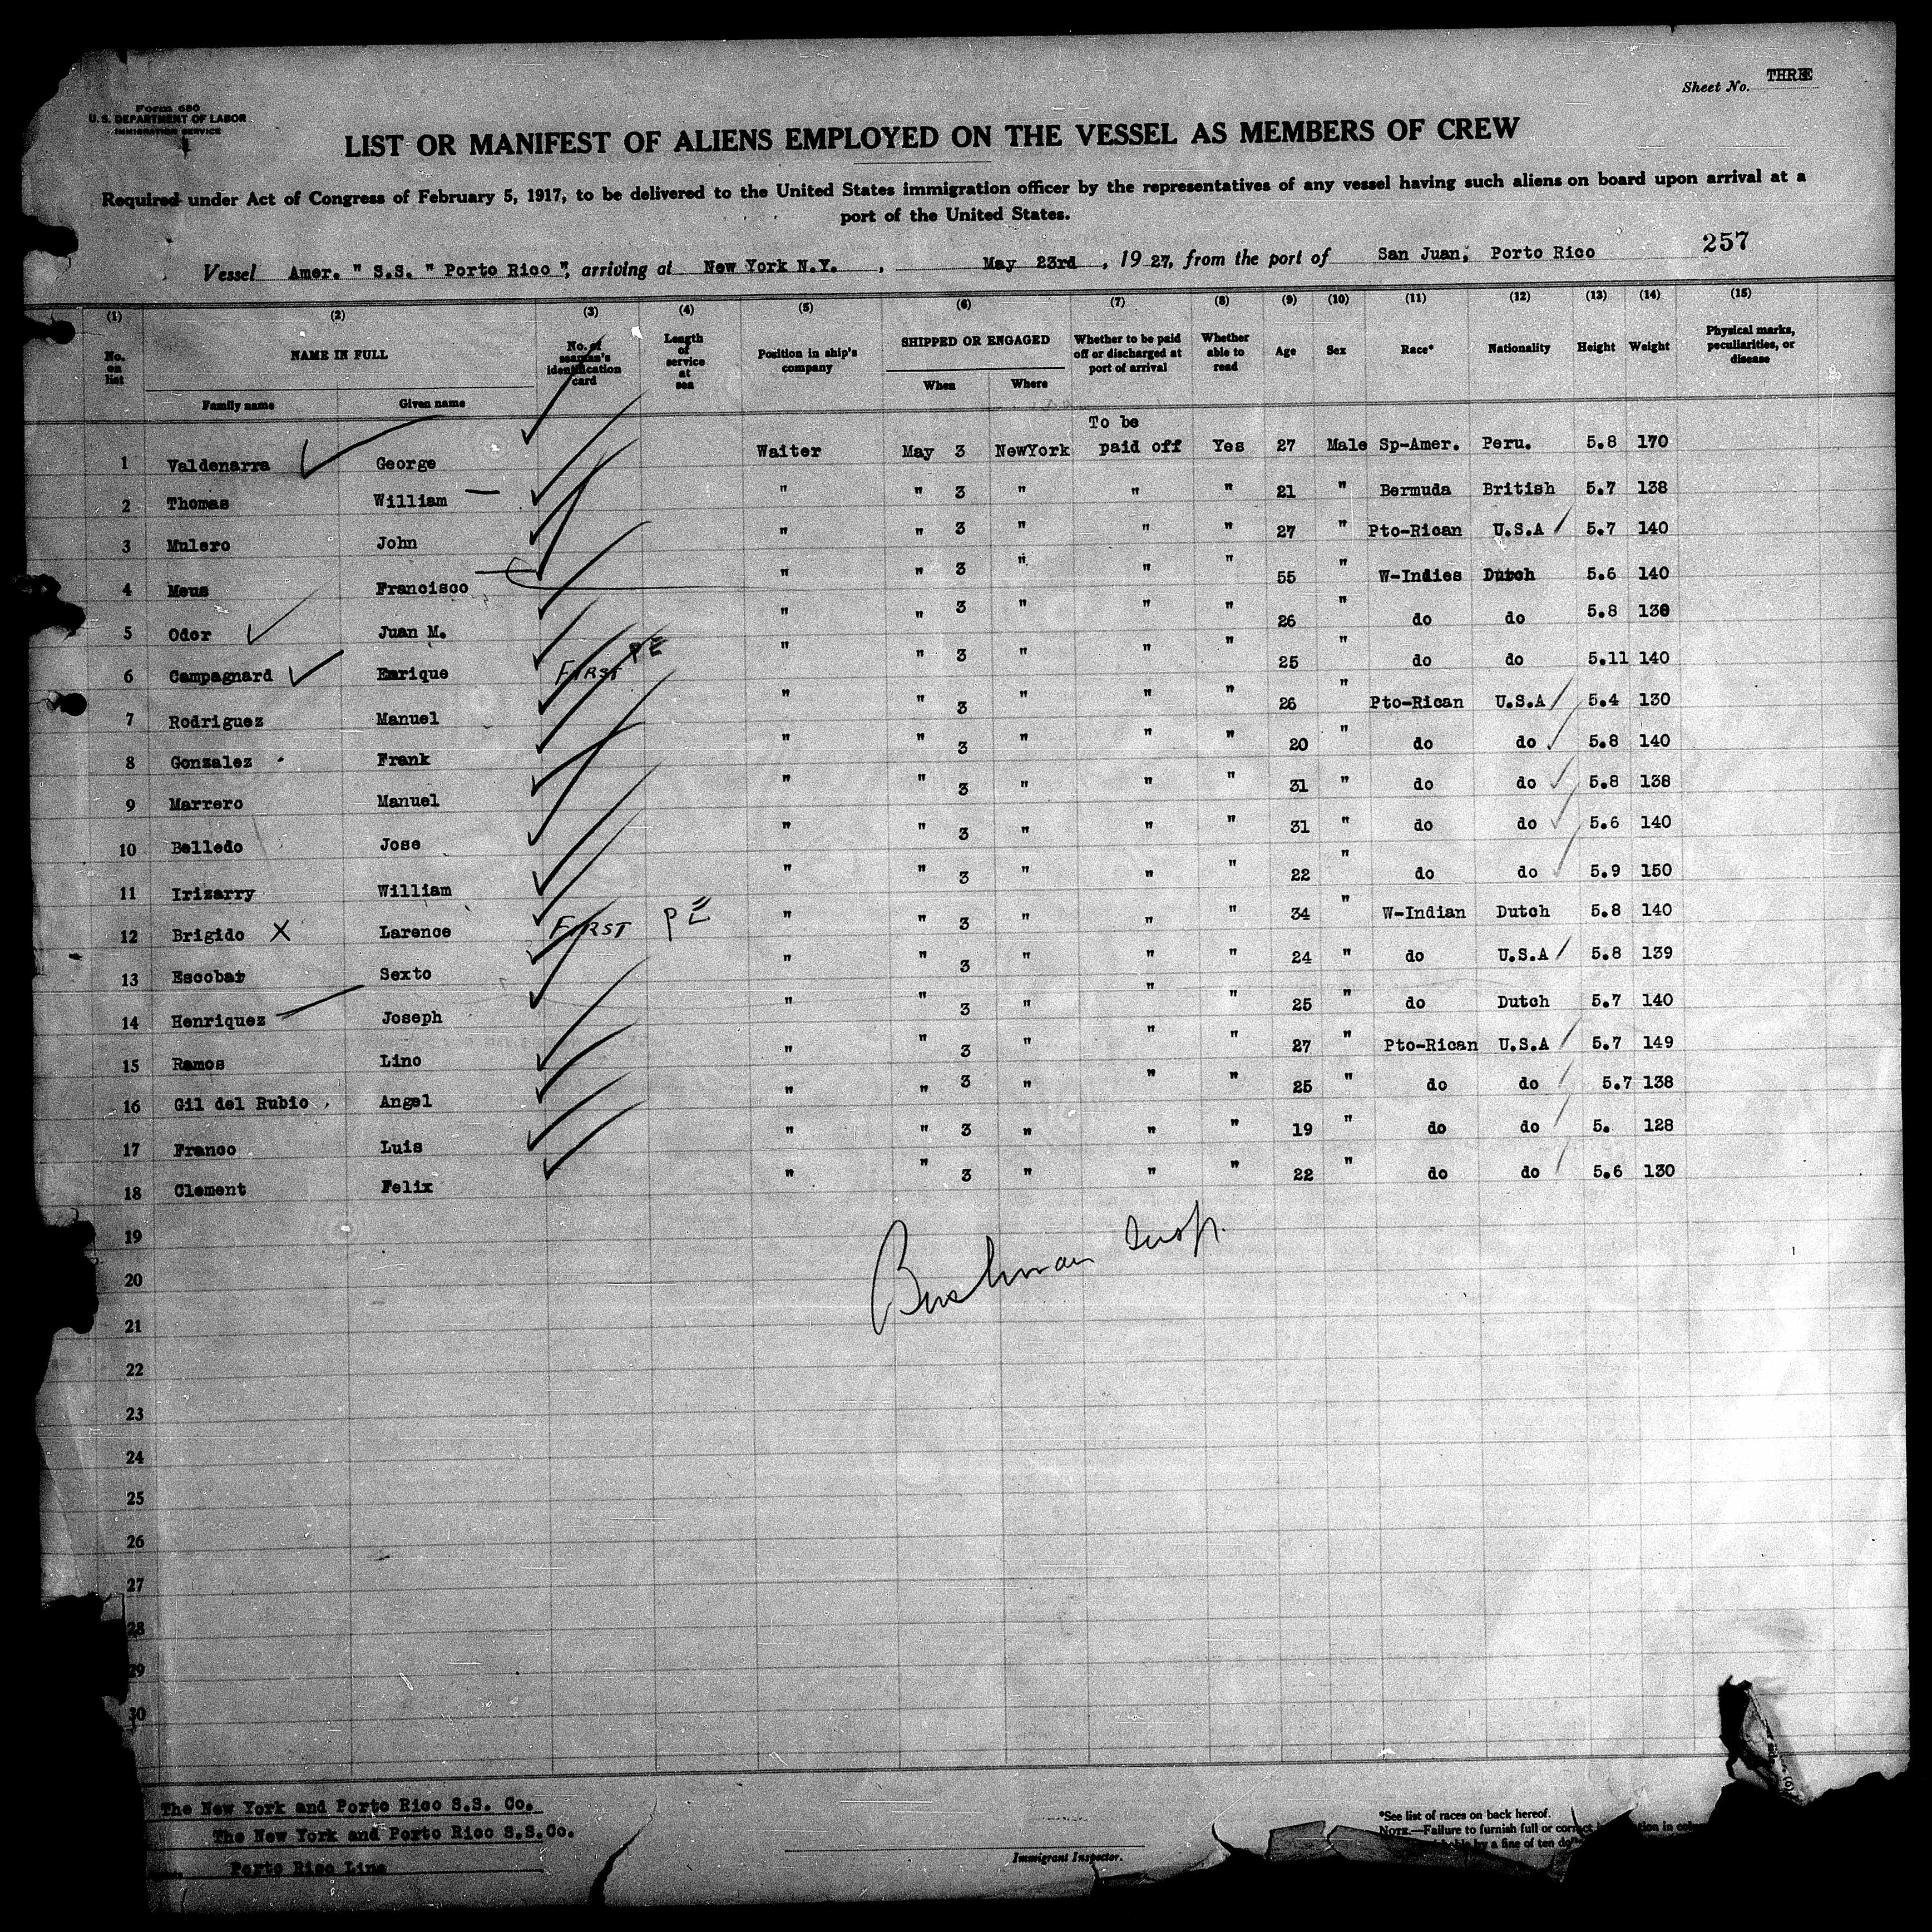 Sheet No. THREE
Form 680
U.S. DEPARTMENT OF LABOR
IMMIGRATION SERVICE
LIST OR MANIFEST OF ALIENS EMPLOYED ON THE VESSEL AS MEMBERS OF CREW
Required under Act of Congress of February 5, 1917, to be delivered to the United States immigration officer by the representatives of any vessel having such aliens on board upon arrival at a
port of the United States.
257
Vessel Amer. " S.S. " Porto Rico ", arriving at New York N.Y. , May 23rd , 1927, from the port of San Juan, Porto Rico
(1) (2) (3) (4) (5) (6) (7) (8) (9) (10) (11) (12) (13) (14) (15)
No. on list NAME IN FULL No. of seaman's identification card Length of service at sea Position in ship's company SHIPPED OR ENGAGED Whether to be paid off or discharged at port of arrival Whether able to read Age Sex Race* Nationality Height Weight Physical marks, peculiarities, or disease
Family name Given name When Where
To be
1 Valdenarra George Waiter May 3 NewYork paid off Yes 27 Male Sp-Amer. Peru. 5.8 170
2 Thomas William " " 3 " " " 21 " Bermuda British 5.7 138
3 Mulero John " " 3 " " " 27 " Pto-Rican U.S.A 5.7 140
4 Meus Francisco " " 3 " " " 55 " W-Indies Dutch 5.6 140
5 Odor Juan M. " " 3 " " " 26 " do do 5.8 130
6 Campagnard Enrique FIRST PE " " 3 " " " 25 " do do 5.11 140
7 Rodriguez Manuel " " 3 " " " 26 " Pto-Rican U.S.A 5.4 130
8 Gonzalez Frank " " 3 " " " 20 " do do 5.8 140
9 Marrero Manuel " " 3 " " " 31 " do do 5.8 138
10 Belledo Jose " " 3 " " " 31 " do do 5.6 140
11 Irizarry William " " 3 " " " 22 " do do 5.9 150
12 Brigido X Larence FIRST PE " " 3 " " " 34 " W-Indian Dutch 5.8 140
13 Escobar Sexto " " 3 " " " 24 " do U.S.A 5.8 139
14 Henriquez Joseph " " 3 " " " 25 " do Dutch 5.7 140
15 Ramos Lino " " 3 " " " 27 " Pto-Rican U.S.A 5.7 149
16 Gil del Rubio Angel " " 3 " " " 25 " do do 5.7 138
17 Franco Luis " " 3 " " " 19 " do do 5. 128
18 Clement Felix " " 3 " " " 22 " do do 5.6 130
19
Bushman Insp.
20
21
22
23
24
25
26
27
28
29
30
The New York and Porto Rico S.S. Co.
The New York and Porto Rico S.S.Co.
Porto Rico Line
Immigrant Inspector.
*See list of races on back hereof.
NOTE.—Failure to furnish full or correct
by a fine of ten